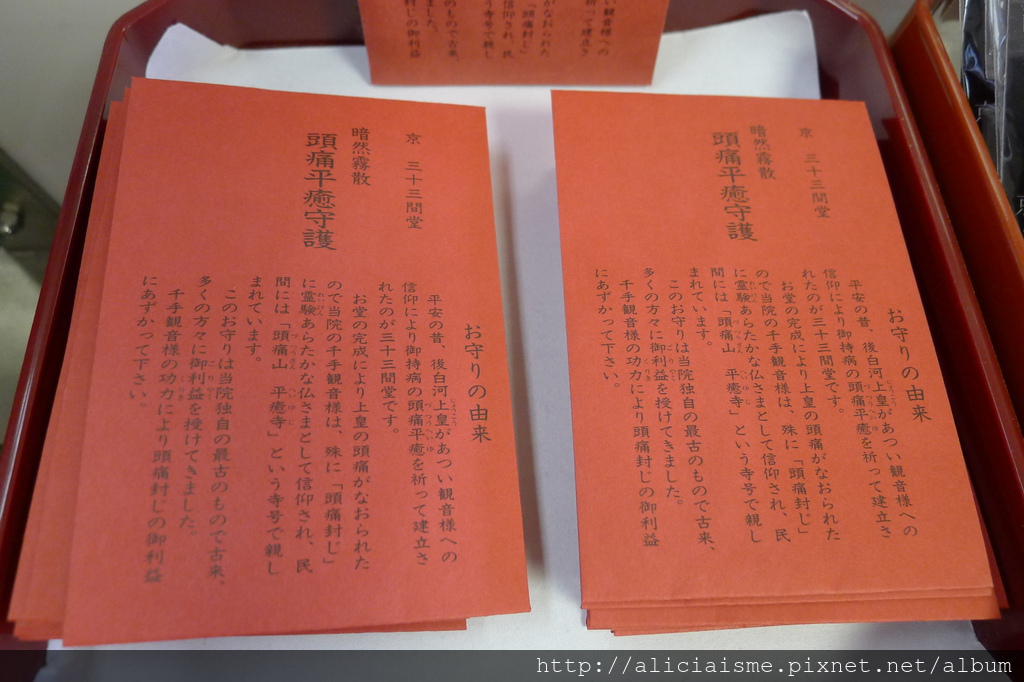 京　三十三間堂
暗然霧散
頭痛平癒守護
お守りの由来
平安の昔、後白河上皇があつい観音様への
信仰により御持病の頭痛平癒を祈って建立さ
れたのが三十三間堂です。
お堂の完成により上皇の頭痛がなおられた
ので当院の千手観音様は、殊に「頭痛封じ」
に霊験あらたかな仏さまとして信仰され、民
間には「頭痛山　平癒寺」という寺号で親し
まれています。
このお守りは当院独自の最古のもので古来、
多くの方々に御利益を授けてきました。
千手観音様の功力により頭痛封じの御利益
にあずかって下さい。
京　三十三間堂
暗然霧散
頭痛平癒守護
お守りの由来
平安の昔、後白河上皇があつい観音様への
信仰により御持病の頭痛平癒を祈って建立さ
れたのが三十三間堂です。
お堂の完成により上皇の頭痛がなおられた
ので当院の千手観音様は、殊に「頭痛封じ」
に霊験あらたかな仏さまとして信仰され、民
間には「頭痛山　平癒寺」という寺号で親し
まれています。
このお守りは当院独自の最古のもので古来、
多くの方々に御利益を授けてきました。
千手観音様の功力により頭痛封じの御利益
にあずかって下さい。
い観音様への
祈って建立さ
がなおられた
「頭痛封じ」
信仰され、民
う寺号で親し
ものもので古来、
ました。
封じの御利益
http://aliciaisme.pixnet.net/album